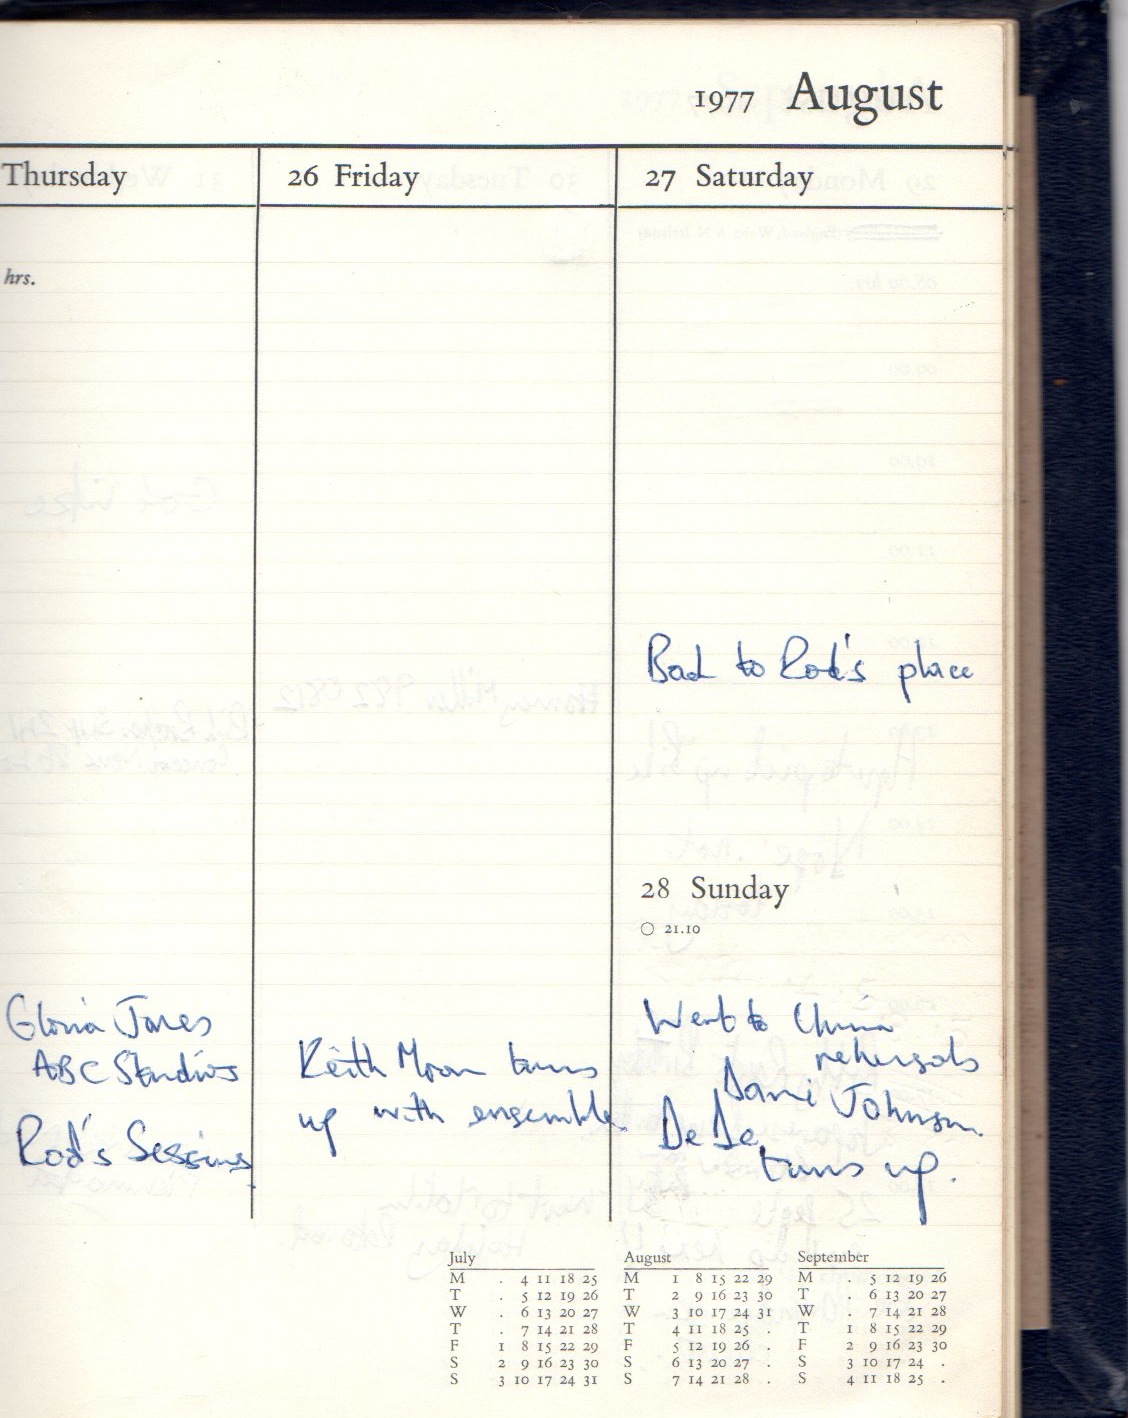 1977 August
Thursday
hrs.
Gloria Jones
ABC Studios
Rod's Sessions
26 Friday
Keith Moon turns
up with ensemble.
27 Saturday
Back to Rod's place
28 Sunday
21.10
Went to China
rehersals
Johnson.
DeDe
turns up.
July
M . 4 11 18 25
T . 5 12 19 26
W . 6 13 20 27
T . 7 14 21 28
F 1 8 15 22 29
S 2 9 16 23 30
S 3 10 17 24 31
August
M 1 8 15 22 29
T 2 9 16 23 30
W 3 10 17 24 31
T 4 11 18 25 .
F 5 12 19 26 .
S 6 13 20 27 .
S 7 14 21 28 .
September
M . 5 12 19 26
T . 6 13 20 27
W . 7 14 21 28
T 1 8 15 22 29
F 2 9 16 23 30
S 3 10 17 24 .
S 4 11 18 25 .